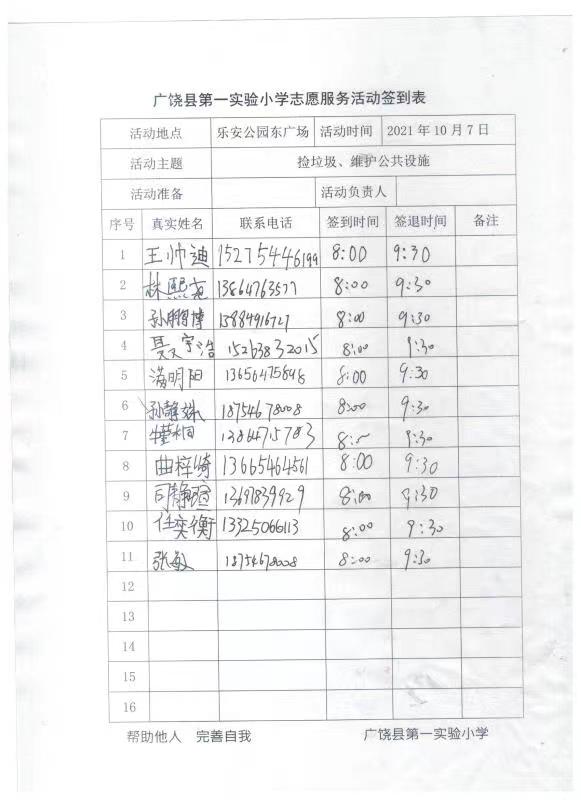 广饶县第一实验小学志愿服务活动签到表
活动地点 乐安公园东广场 活动时间 2021年10月7日
活动主题 捡垃圾、维护公共设施
活动准备 活动负责人
序号 真实姓名 联系电话 签到时间 签退时间 备注
1 王帅迪 15275446199 8:00 9:30
2 林熙尧 13864763577 8:00 9:30
3 孙鹏博 13884916727 8:00 9:30
4 聂宇浩 15263832015 8:00 9:30
5 满明阳 13656475898 8:00 9:30
6 孙静姝 18754678008 8:00 9:30
7 13864715783 8:00 9:30
8 曲梓绮 13665464561 8:00 9:30
9 司静瑄 13697839929 8:00 9:30
10 任奕衡 13325066113 8:00 9:30
11 张敏 18754678008 8:00 9:30
12
13
14
15
16
帮助他人 完善自我 广饶县第一实验小学